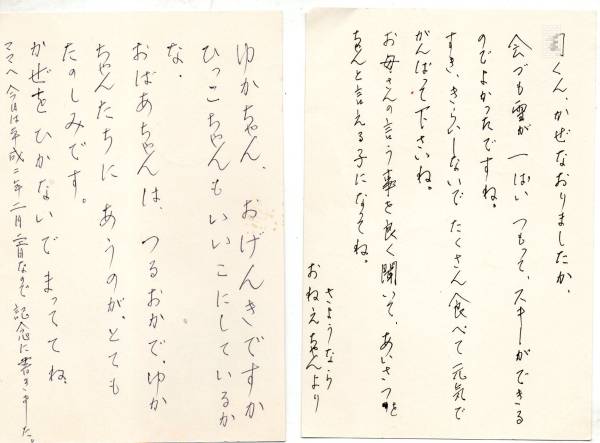 くん、かぜなおりましたか。
会づも雪が一ぱいつもって、スキーができる
のでよかったですね。
すき、きらいしないでたくさん食べて元気で
がんばって下さいね。
お母さんの言う事を良く聞いて、あいさつを
ちゃんと言える子になってね。
さようなら
おねえちゃんより
ゆかちゃん、おげんきですか
ひっこちゃんもいいこにしているか
な.
おばあちゃんは、つるおかで、ゆか
ちゃんたちにあうのが、とても
たのしみです。
かぜをひかないでまっててね
ママへ今日は平成二年二月二日なので記念に書きました。